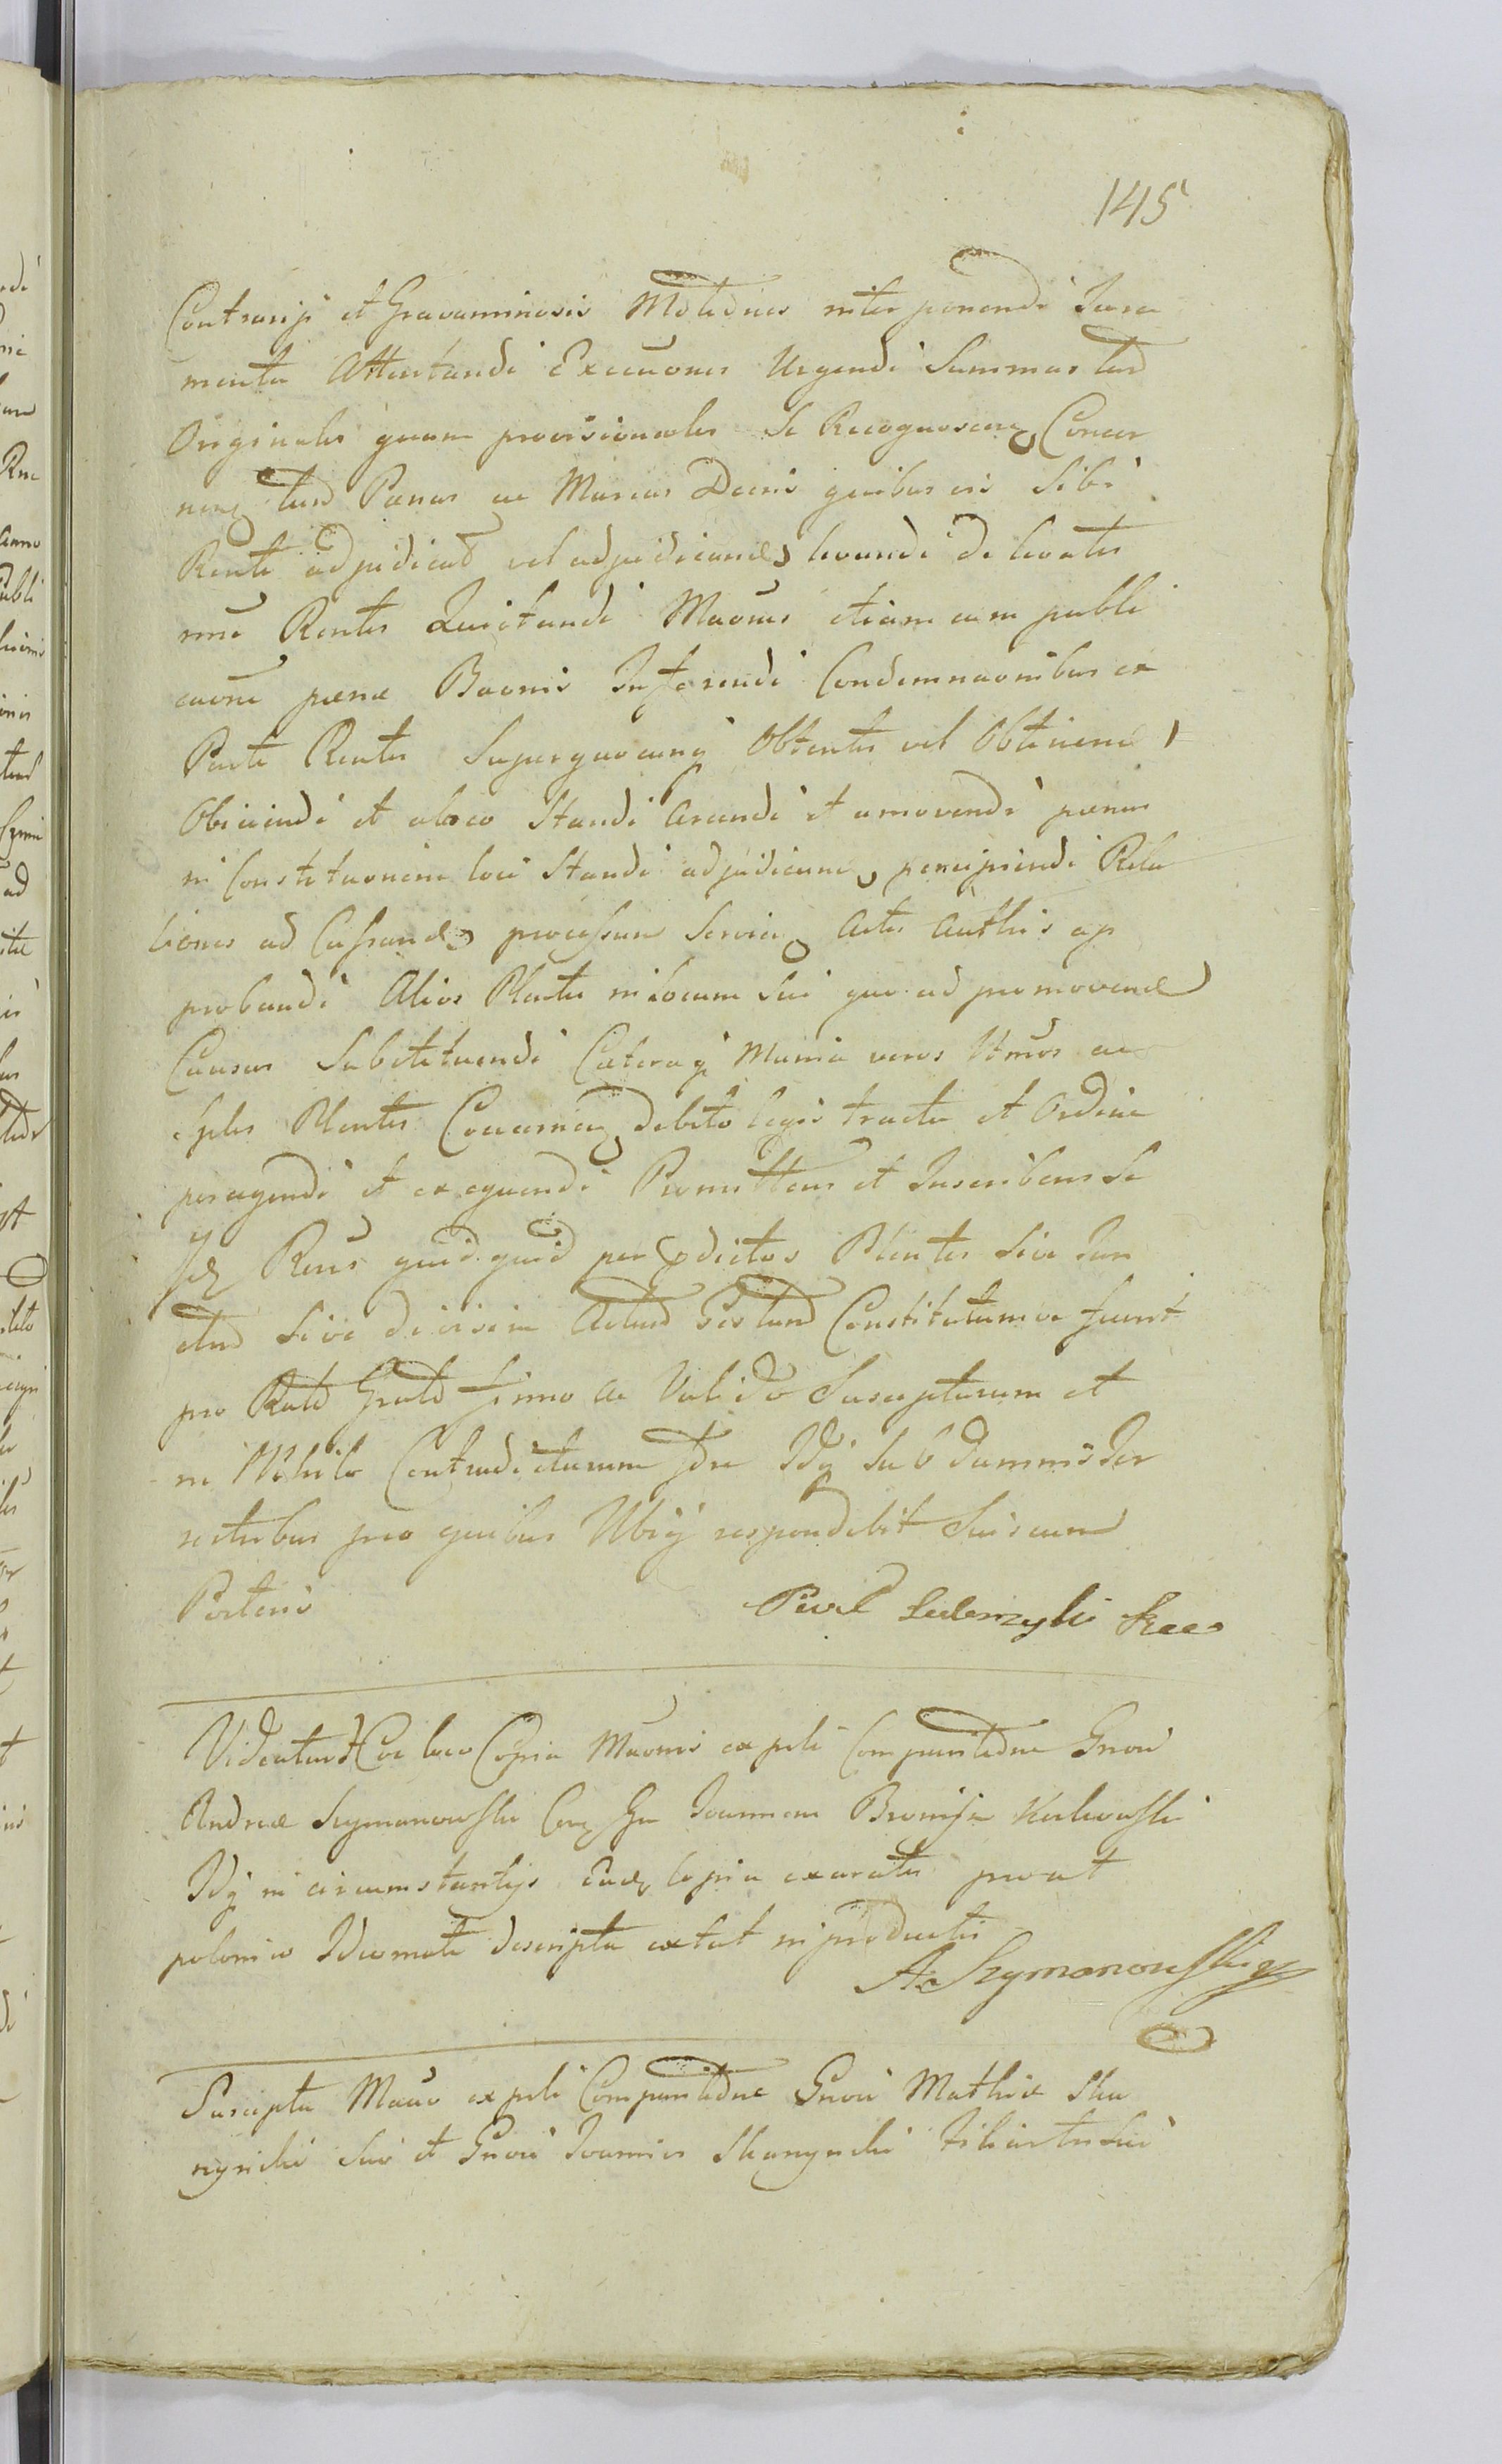 145
Contrarijs et Gravaminosis Motiones interponendi Jura
menta Attestandi Execuones Urgendi Summas tam
Originales quam provisionales Se Recognoscen Concer
nen tum Pænas ac Marcas Decris quibusvis Sibi
Rente adjudicat vel adjudicand levandi de levatis
Rentes Quietandi Maones etiam cum publi
caone pænæ Baonis Inferendi Condemnaonibus ex
Parte Rentis Superquocunq Obtentis vel Obtinend
Obiiciendi et a loco Standi Arcendi et amovendi pænas
in Constitutionem loci Standi adjudicand percipiendi Rela
tiones ad Cassand processum Servien Actis Authis ap
probandi Alios Plentes in locum Sui quo ad promovend
Causas Substituendi Cæteraq Munia veros Ltmos ac
Sples Plentes Concernen debito legis tractu et Ordine
peragendi et exequendi Promittens et Inscribens Se
Rens quidquid per prædictos Plentes Sive Jun
ctim Sive divisim Actum Gestum Constitutumve fuerit
pro Rato Grato firmo ac Valido Suscepturum et
in Nihilo Contradicturum fore Idq Sub damnis ter
restribus pro quibus Ubiq respondebit Suis cum
Posteris
Videatur Hoc loco Copia Maonis ex pcli Comparitione Gnosi
Andreæ Szymanowski Joannem
Idq in circumstantijs Ead copia exaratis prout
polonico Idiomate descripta extat in productis
A. Szymanowski
Suscepta Maao ex pcli Comparitione Gnosi Mathiæ Ska
rzynski Sui et Gnosi Joannis Skarzynski